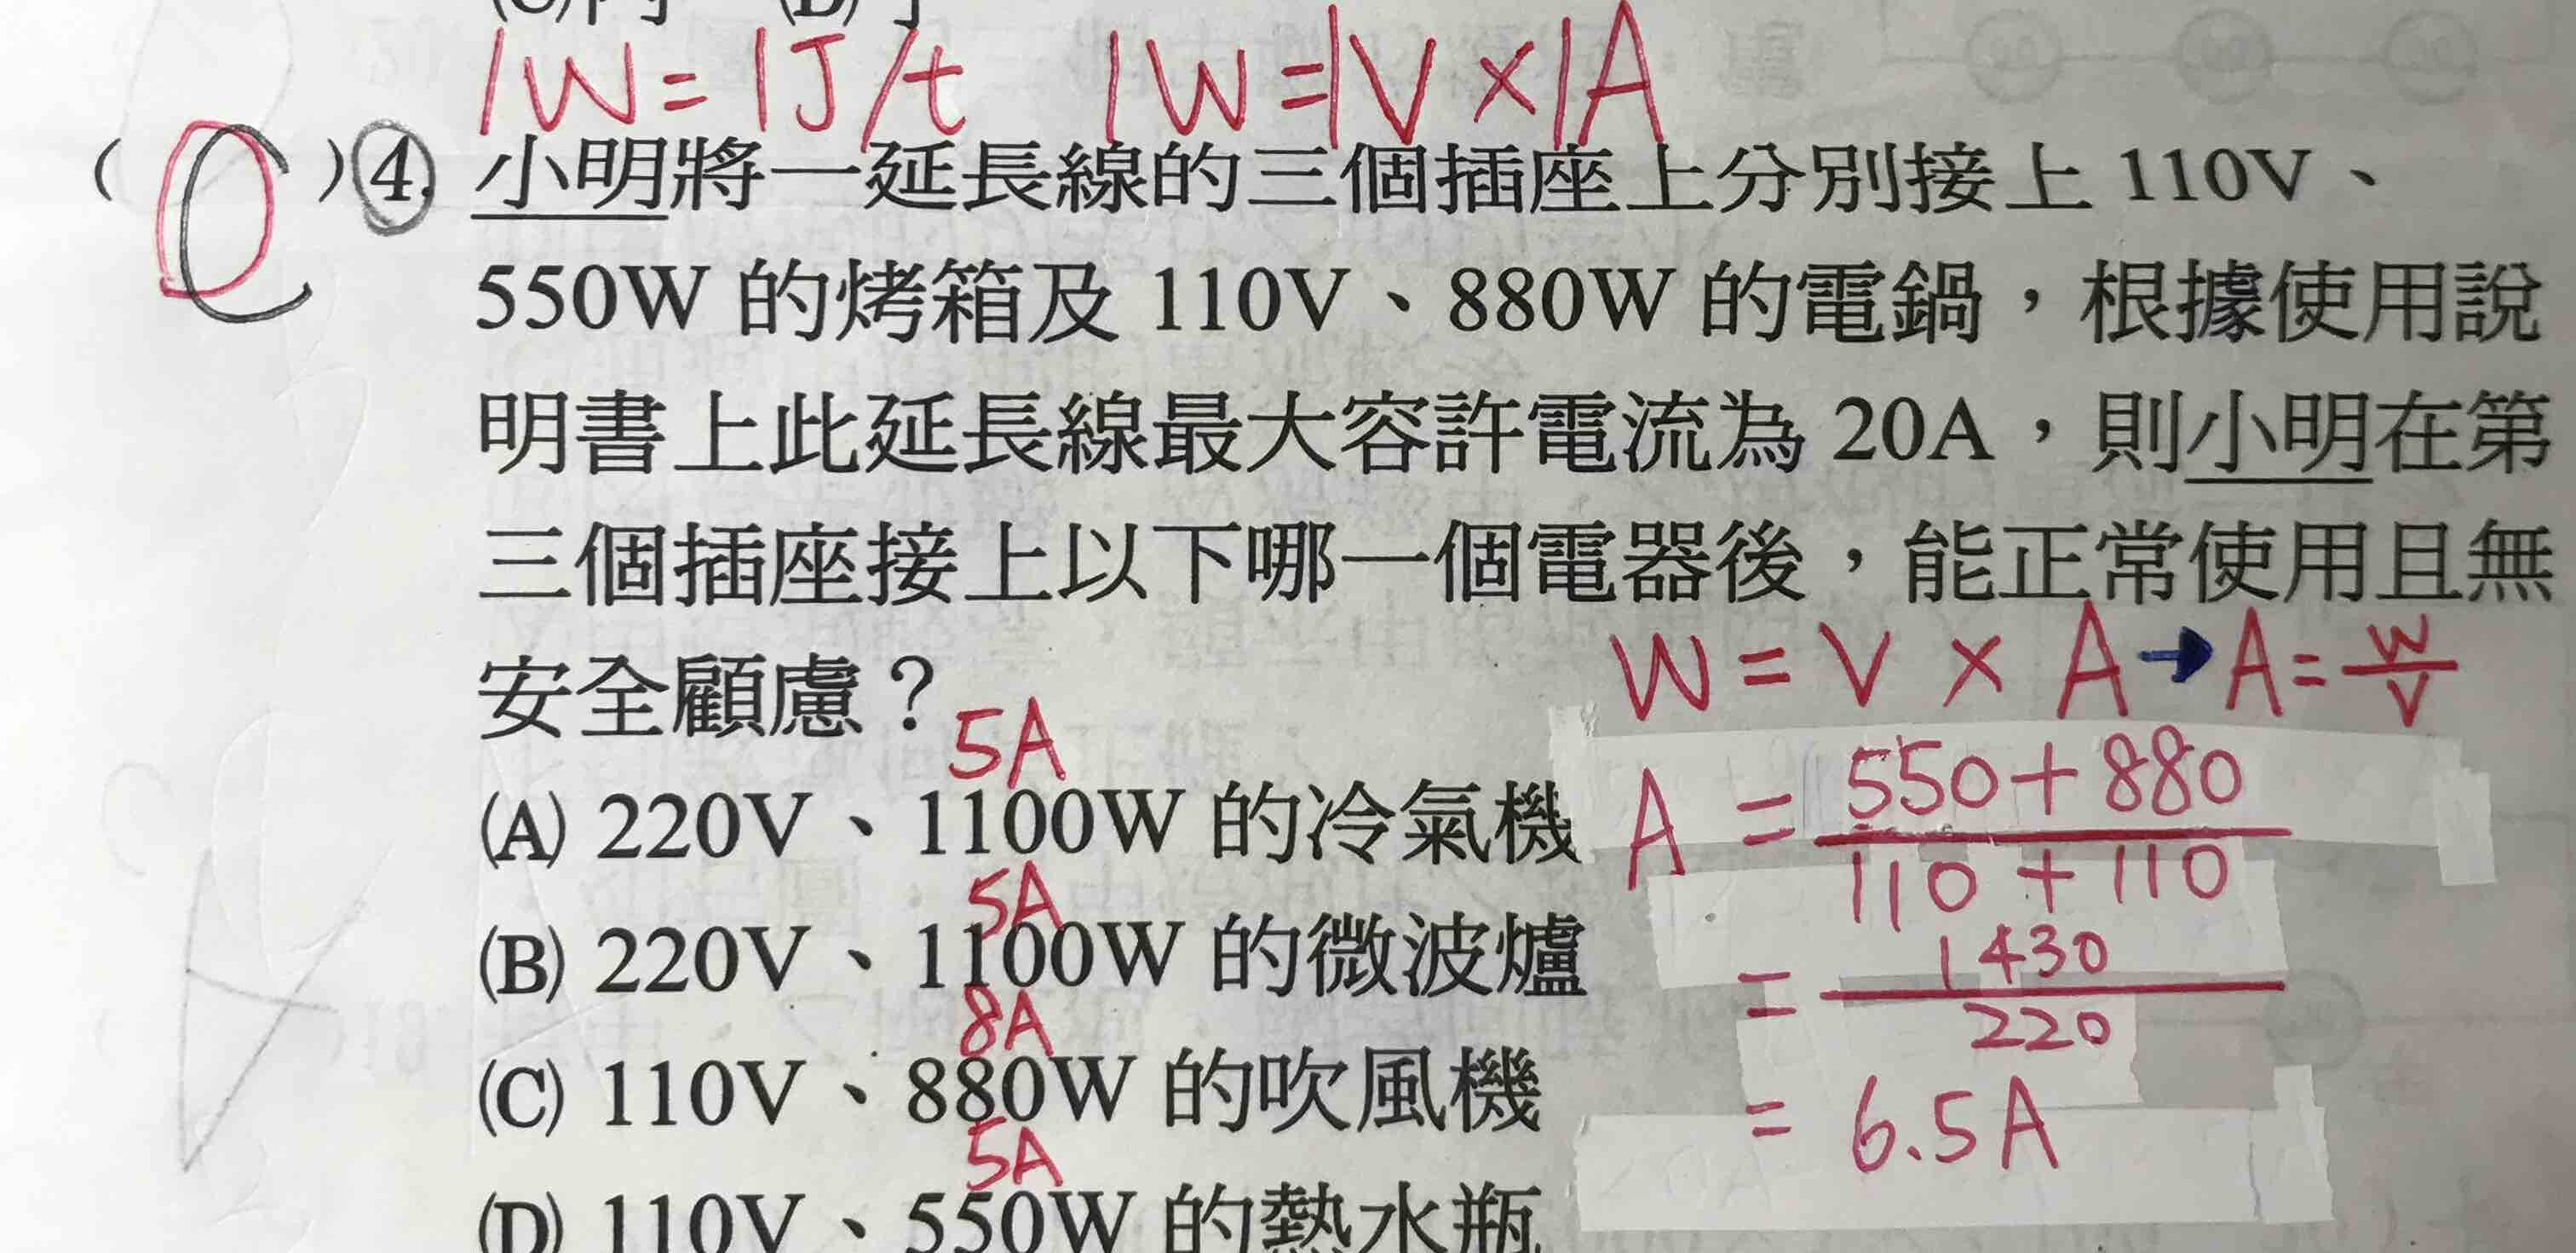 1W=1J/t 1W=1V×1A
( D C )4. 小明將一延長線的三個插座上分別接上 110V、
550W 的烤箱及 110V、880W 的電鍋，根據使用說
明書上此延長線最大容許電流為 20A，則小明在第
三個插座接上以下哪一個電器後，能正常使用且無
安全顧慮？
W=V×A→A=W/V
5A
(A) 220V、1100W 的冷氣機
A = (550+880)/(110+110)
5A
(B) 220V、1100W 的微波爐
= 1430/220
8A
(C) 110V、880W 的吹風機
= 6.5A
5A
(D) 110V、550W 的熱水瓶